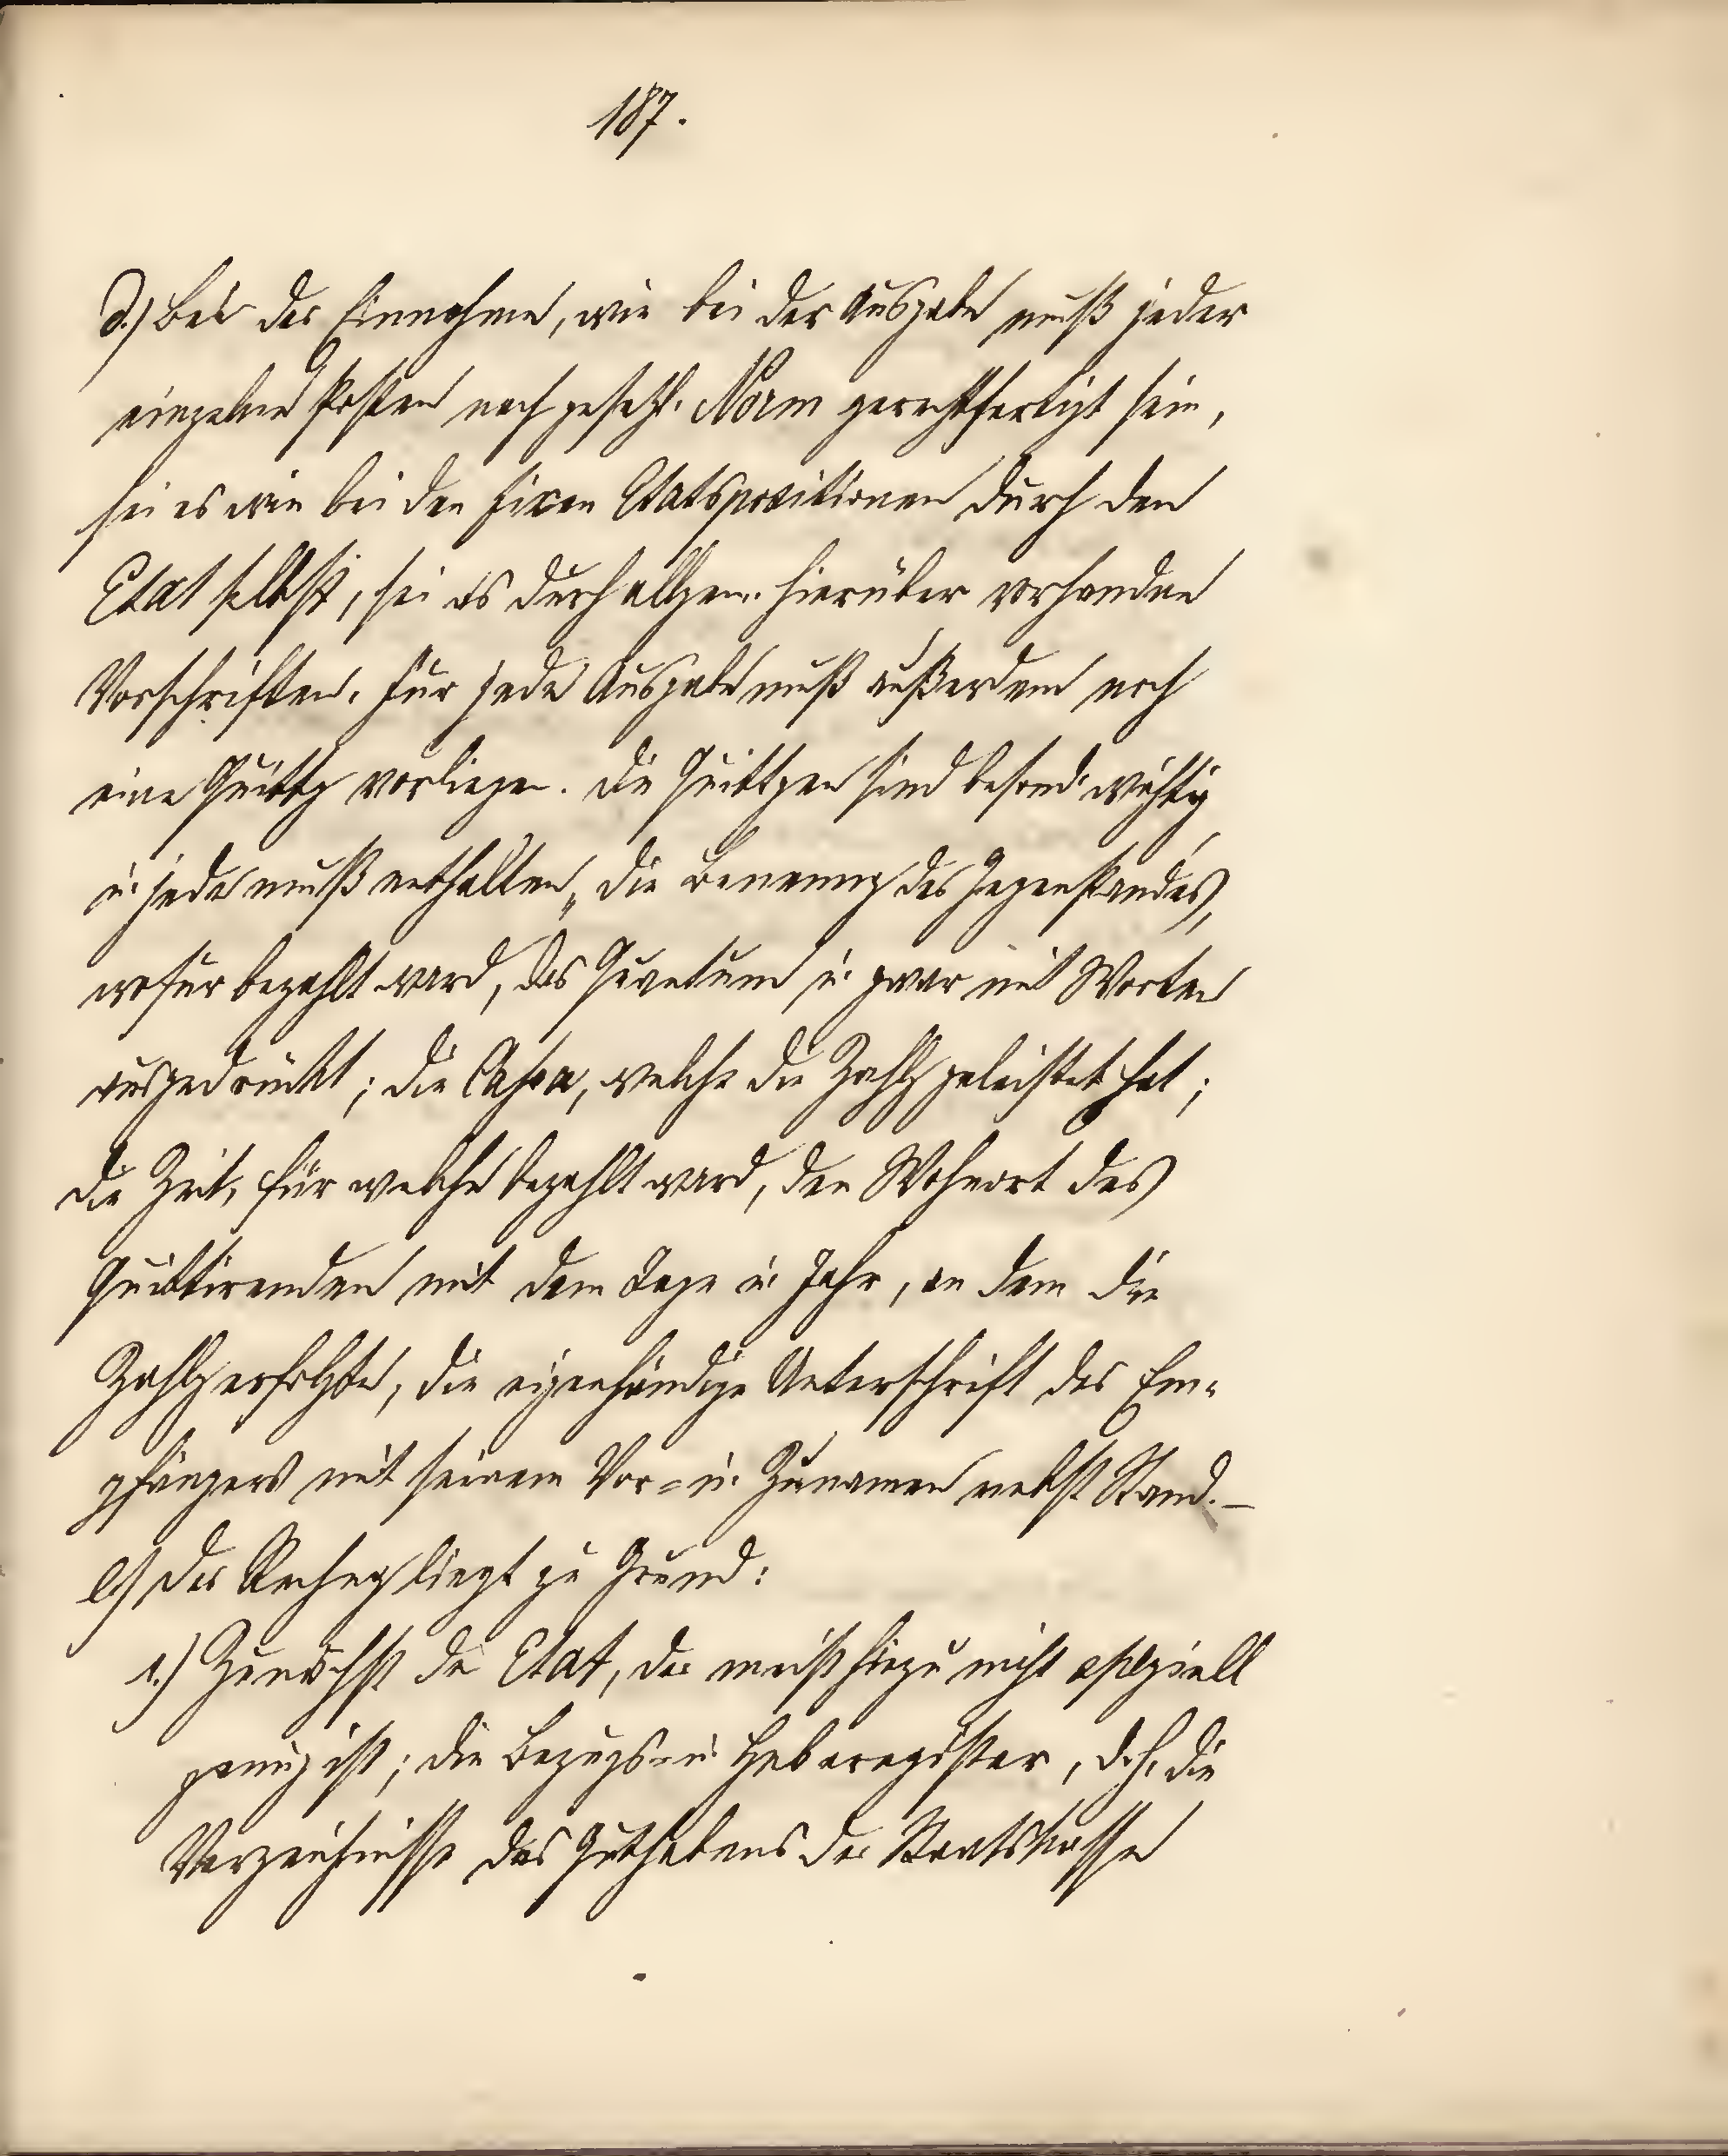 187.
d.) Bei der Einnahme, wie bei der Ausgabe muß jeder
einzelne Posten nach gesetzl. Norm gerechtfertigt sein,
sei es wie bei den fixen Etatspositionen durch den
Etat selbst, sei es durch allgem. hierüber vorhanden
Vorschriften. Für jede Ausgabe muß außerdem noch
eine Quittg vorliegen. Die Quittgen sind besond. wichtig
u. jede muß enthalten, die Benennung des Gegenstandes,
wofür bezahlt ward, das Quantum u. zwar mit Worten
ausgedrückt; die Cassa, welche die Zahlg geleistet hat;
die Zeit, für welche bezahlt ward, den Wohnort des
Quittirenden mit dem Tage u. Jahr, an dem die
Zahlg erfolgte, die eigenhändige Unterschrift des Em-
pfängers mit seinem Vor- u. Zunamen nebst Stand. –
e.) Der Rechng liegt zu Grund:
1.) Zunächst der Etat, der meist hiezu nicht speziell
genug ist; die Bezugs- u. Heberegister, d. h. die
Verzeichnisse des Guthabens der Staatskasse